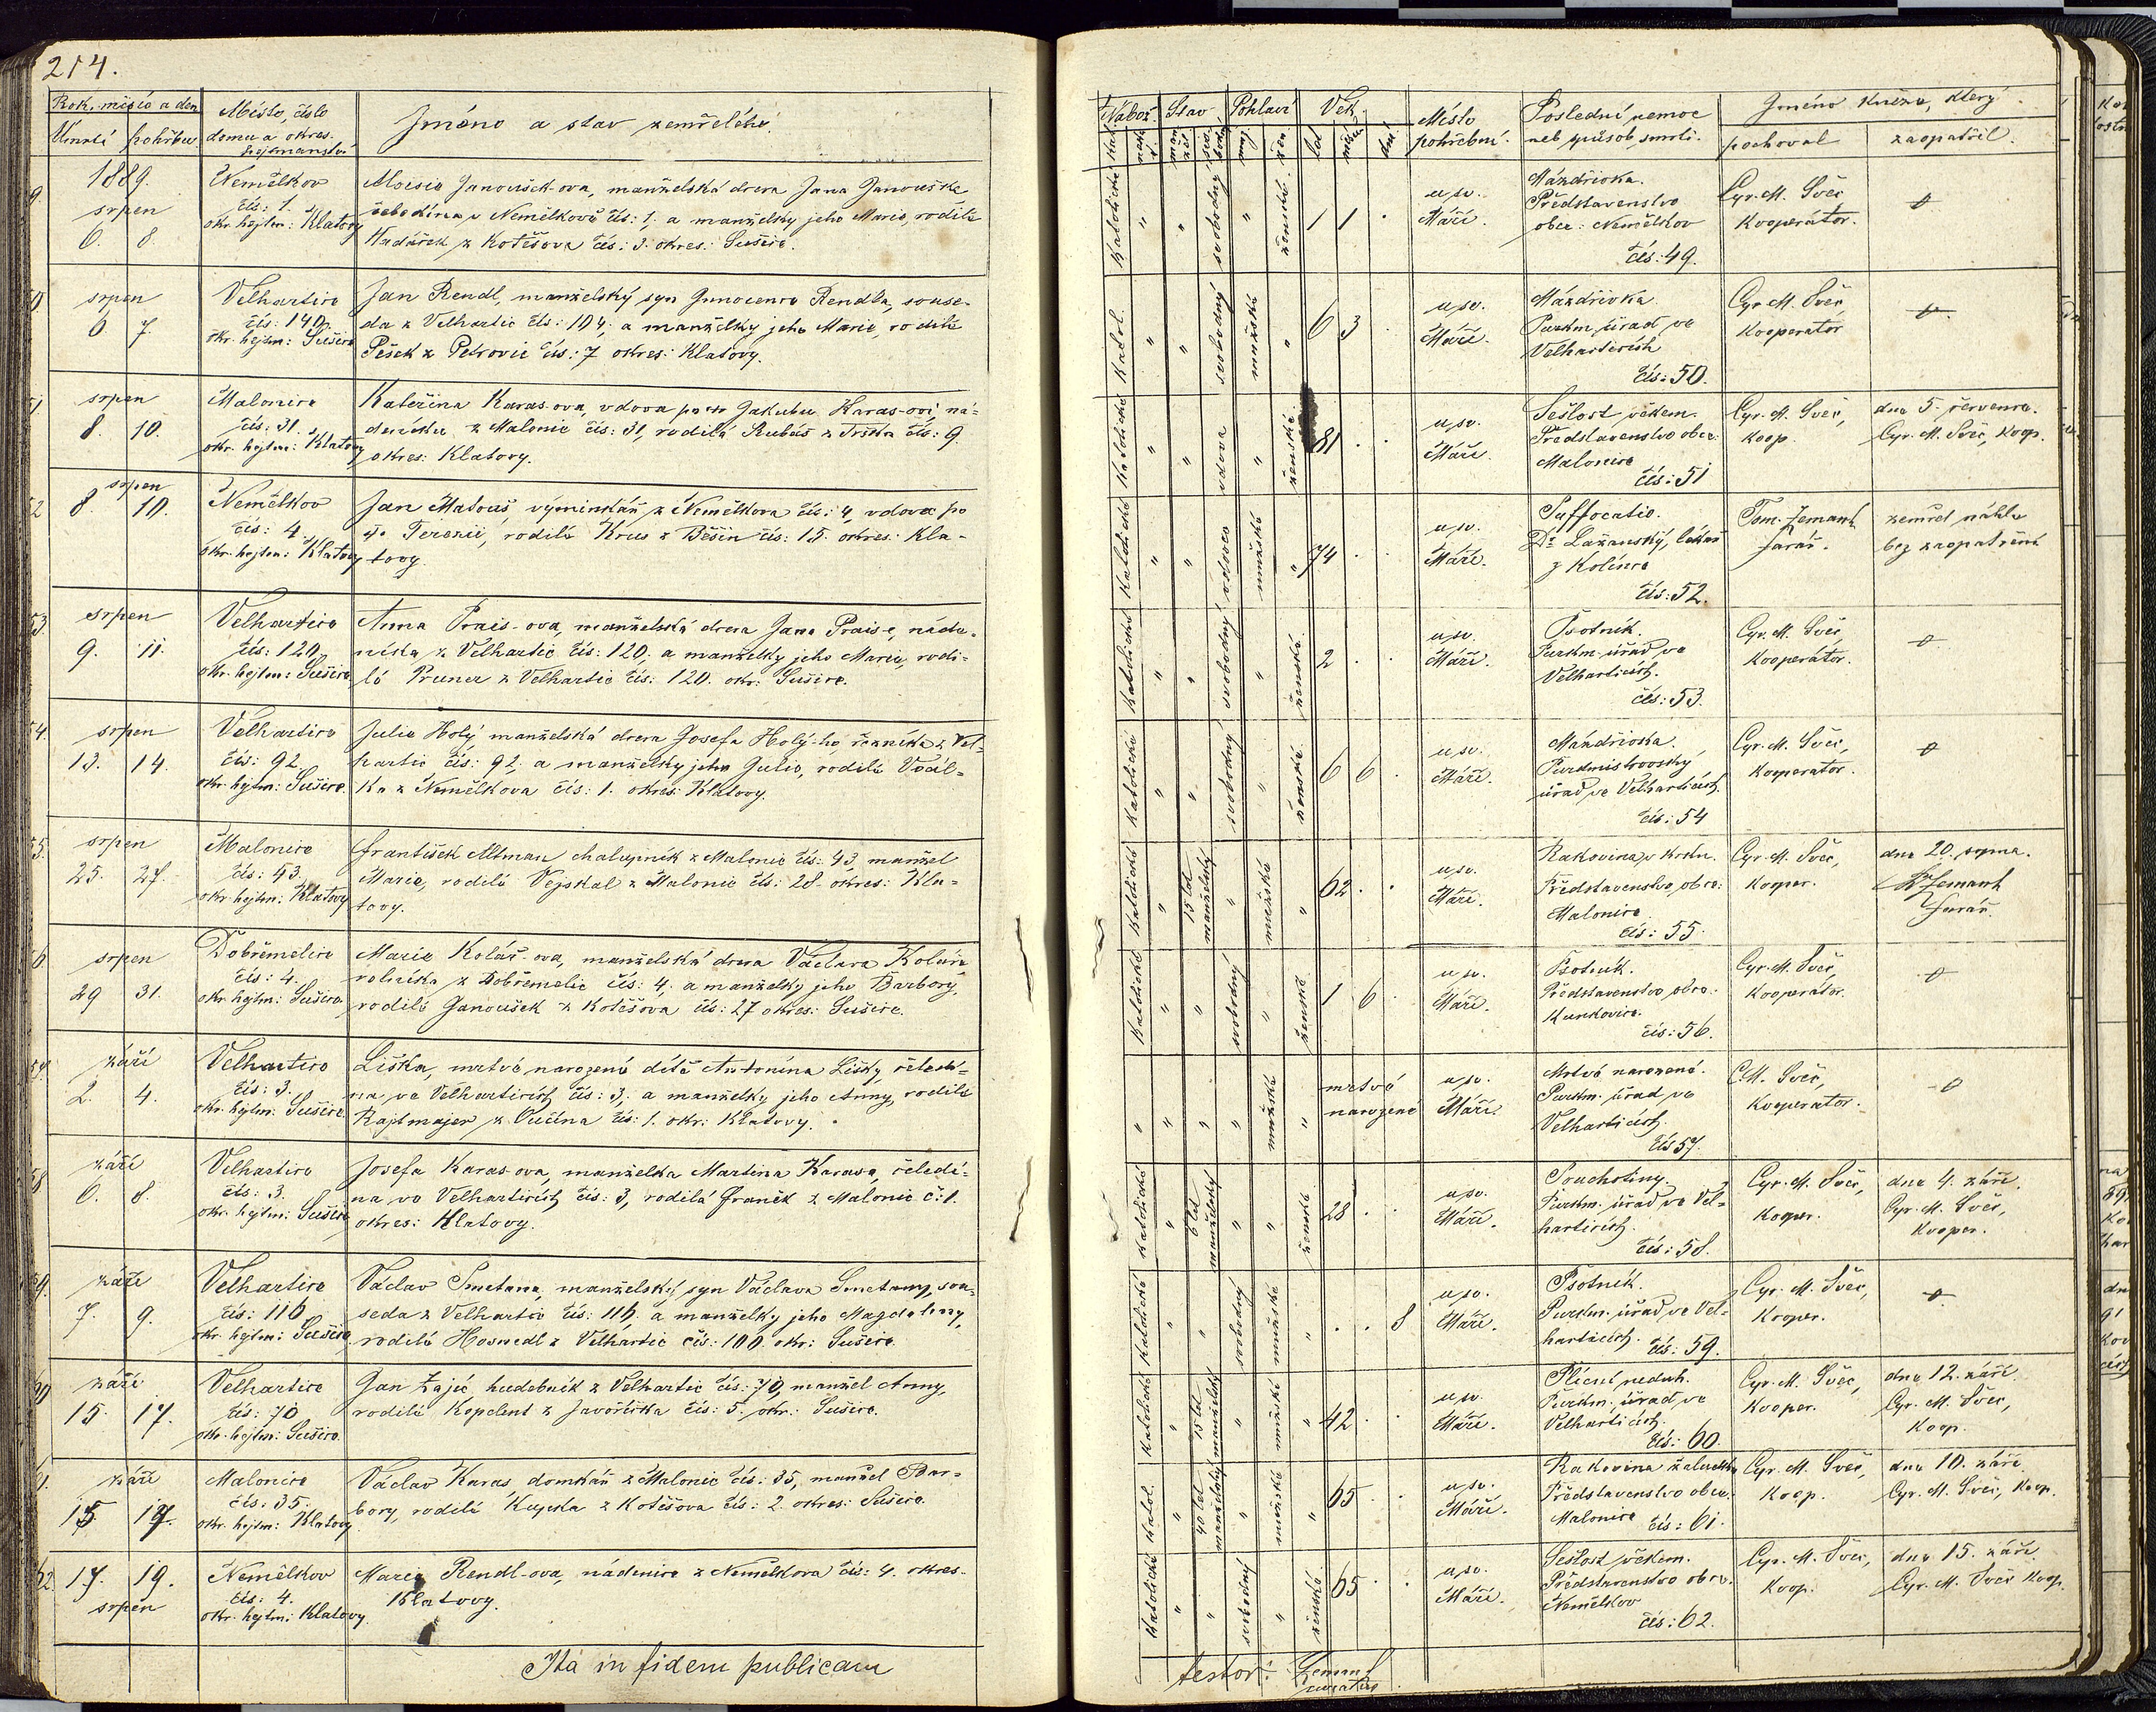 214.
Rok, měsíc a den
Úmrtí pohřbu
Místo, číslo
domu a okres.
hejtmanství
Jméno a stav zemřelého.
1889.
srpen
6. 8.
Němělkov
čís: 1.
okr. hejtm: Klatovy
Aloisie Janoušek-ova, manželská dcera Jana Janouška
čeledína v Němělkově čís: 1, a manželky jeho Marie, rodilé
z Kotěšova čís: 3. okres: Sušice.
srpen
6 7.
Velhartice
čís: 140.
okr. hejtm: Sušice
Jan Rendl, manželský syn Innocence Rendla, souse-
da z Velhartic čís: 104. a manželky jeho Marie, rodilé
Pešek z Petrovic čís: 7 okres: Klatovy.
51
srpen
8. 10.
Malonice
čís: 31.
okr. hejtm: Klatovy
Kateřina Karas-ova, vdova po Jakubu Karas-ovi, ná-
deníku z Malonic čís: 31, rodilá Rubáš z čís: 9
okres: Klatovy.
52
srpen
8. 10.
Němělkov
čís: 4.
okr. hejtm: Klatovy
Jan Matouš, výminkář z Němělkova čís: 4, vdovec po
Terezii, rodilé Krus z Běšin čís: 15. okres: Kla-
tovy.
53.
srpen
9. 11.
Velhartice
čís: 120.
okr. hejtm: Sušice
Anna Prais-ova, manželská dcera Jana Praise, náde-
níka z Velhartic čís: 120. a manželky jeho Marie, rodi-
lé Pruner z Velhartic čís: 120. okr: Sušice.
54.
srpen
13. 14.
Velhartice
čís: 92.
okr. hejtm: Sušice.
Julie Holý manželská dcera Josefa Holý-ho, řezníka z Vel-
hartic čís: 92, a manželky jeho Julie, rodilé Voál-
ka z Němělkova čís: 1. okres: Klatovy.
55.
srpen
25. 27.
Malonice
čís: 43.
okr hejtm: Klatovy
František Altman chalupník z Malonic čís: 43, manžel
Marie, rodilé Vejskal z Malonic čís: 28. okres: Kla-
tovy.
srpen
29 31.
Dobřemělice
čís: 4.
okr hejtm: Sušice
Marie Kolář-ova, manželská dcera Václava Koláře
rolníka z Dobřemělic čís: 4, a manželky jeho Barbory,
rodilé Janoušek z Kotěšova čís: 27 okres: Sušice.
57.
září
2. 4.
Velhartice
čís: 3.
okr. hejtm: Sušice
Liška, mrtvě narozené dítě Antonína Lišky, čeledí-
na ve Velharticích čís: 3, a manželky jeho Anny, rodilé
Rajtmajer z Vučína čís: 1. okr: Klatovy.
58
září
6. 8.
Velhartice
čís: 3.
okr. hejtm: Sušice
Josefa Karas-ova, manželka Martina Karasa, čeledí-
na ve Velharticích čís: 3, rodilá Franěk z Malonic č: 1.
okres: Klatovy.
59.
září
7. 9.
Velhartice
čís: 116.
okr. hejtm: Sušice
Václav Smetana, manželský syn Václava Smetany, sou-
seda z Velhartic čís: 116. a manželky jeho Magdaleny,
rodilé Hosmedl z Velhartic čís: 100. okr: Sušice.
60
září
15. 17.
Velhartice
čís: 70
okr. hejtm: Sušice.
Jan Zajíc, hudebník z Velhartic čís: 70, manžel Anny,
rodilé Kopelent z Javoříčka čís: 5. okr: Sušice.
61.
září
15 17.
Malonice
čís: 35.
okr. hejtm: Klatovy.
Václav Karas, domkář z Malonic čís: 35, manžel Bar-
bory, rodilé Kupska z Kotěšova čís: 2. okres: Sušice.
62.
17. 19.
srpen
Němělkov
čís: 4.
okr. hejtm: Klatovy.
Marie Rendl-ova, nádenice z Němělkova čís: 4. okres-
Klatovy.
Ita in fidem publicam
Nábož. Stav Pohlaví Věk
Kat. nekat. manžel. svobod. muž. žen. let měsíců dní
Místo
pohřbení.
Poslední nemoc
neb způsob smrti.
Jméno kněze, který
pochoval zaopatřil.
Katolické " " svobodný " ženské. 1 1 .
u sv.
Máří.
Máždřivka.
Představenstvo
obce: Němělkov
čís: 49.
Cyr. M. Švec
Kooperátor.
Katol. " " svobodný mužské " 6 3 .
u sv.
Máří.
Máždřivka
Purkm. úřad ve
Velharticích
čís: 50.
Cyr. M. Švec,
Kooperátor
Katolické " " vdova " ženské 81 . .
u sv.
Máří.
Sešlost věkem.
Představenstvo obce:
Malonice
čís: 51
Cyr. M. Švec,
koop.
dne 5. července.
Cyr. M. Švec, koop.
Katolické " " vdovec mužské " 74 . .
u sv.
Máří.
Suffocatio.
Dr. Lažanský, lékař
z Kolince
čís: 52.
Tom. Zemant
farář.
zemřel náhle
bez zaopatření
Katolické " " svobodný " ženské. 2 . .
u sv.
Máří.
Psotník.
Purkm. úřad ve
Velharticích.
čís: 53.
Cyr. M. Švec,
Kooperátor.
Katolické " " svobodný " ženské 6 6 .
u sv.
Máří.
Máždřivka.
Purkmistrovský
úřad ve Velharticích.
čís: 54
Cyr. M. Švec,
Kooperátor.
Katolické " 15 let manželský " mužské " 62 . .
u sv.
Máří.
Rakovina v krku.
Představenstvo obce:
Malonice
čís: 55.
Cyr. M. Švec,
kooper.
dne 20. srpna.
Zemant
farář.
Katolické " " svobodný " ženské 1 6 .
u sv.
Máří.
Psotník.
Představenstvo obce:
Kundovice.
čís: 56.
Cyr. M. Švec,
Kooperátor.
" " " " mužské " mrtvě
narozené
u sv.
Máří.
Mrtvě narozené.
Purkm. úřad ve
Velharticích.
čís 57.
C.M. Švec,
Kooperátor.
Katolické " 6 let manželský " " ženské 28 . .
u sv.
Máří.
Souchotiny.
Purkm. úřad ve Vel-
harticích.
čís: 58.
Cyr. M. Švec,
Kooper.
dne 4. září.
Cyr. M. Švec,
Kooper.
Katolické " " svobodný mužské " . . 8
u sv.
Máří.
Psotník.
Purkm. úřad ve Vel-
harticích. čís: 59.
Cyr. M. Švec,
Kooper.
Katolické " 15 let manželský " mužské " 42 . .
u sv.
Máří.
Plicní neduh.
Purkm. úřad ve
Velharticích.
čís: 60.
Cyr. M. Švec,
Kooper.
dne 12. září.
Cyr. M. Švec,
Koop.
Katol. " 40 let manželský " mužské " 65 . .
u sv.
Máří.
Rakovina žaludku
Představenstvo obce:
Malonice čís: 61.
Cyr. M. Švec
Koop.
dne 10. září
Cyr. M. Švec, Koop.
Katolické " " svobodný " ženské 65 . .
u sv.
Máří.
Sešlost věkem.
Představenstvo obce:
Němělkov
čís: 62.
Cyr. M. Švec,
Koop.
dne 15. září
Cyr. M. Švec Koop.
testor: Zemant